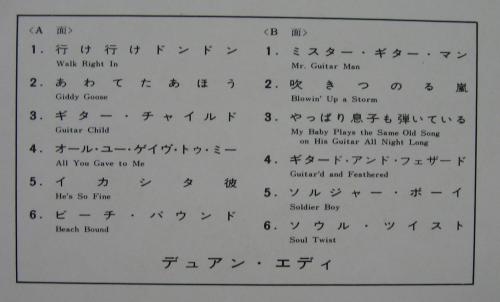 <A 面>
1. 行け行けドンドン
Walk Right In
2. あわてたあほう
Giddy Goose
3. ギター・チャイルド
Guitar Child
4. オール・ユー・ゲイヴ・トゥ・ミー
All You Gave to Me
5. イカシタ彼
He's So Fine
6. ビーチ・バウンド
Beach Bound
<B 面>
1. ミスター・ギター・マン
Mr. Guitar Man
2. 吹きつのる嵐
Blowin' Up a Storm
3. やっぱり息子も弾いている
My Baby Plays the Same Old Song
on His Guitar All Night Long
4. ギタード・アンド・フェザード
Guitar'd and Feathered
5. ソルジャー・ボーイ
Soldier Boy
6. ソウル・ツイスト
Soul Twist
デュアン・エディ